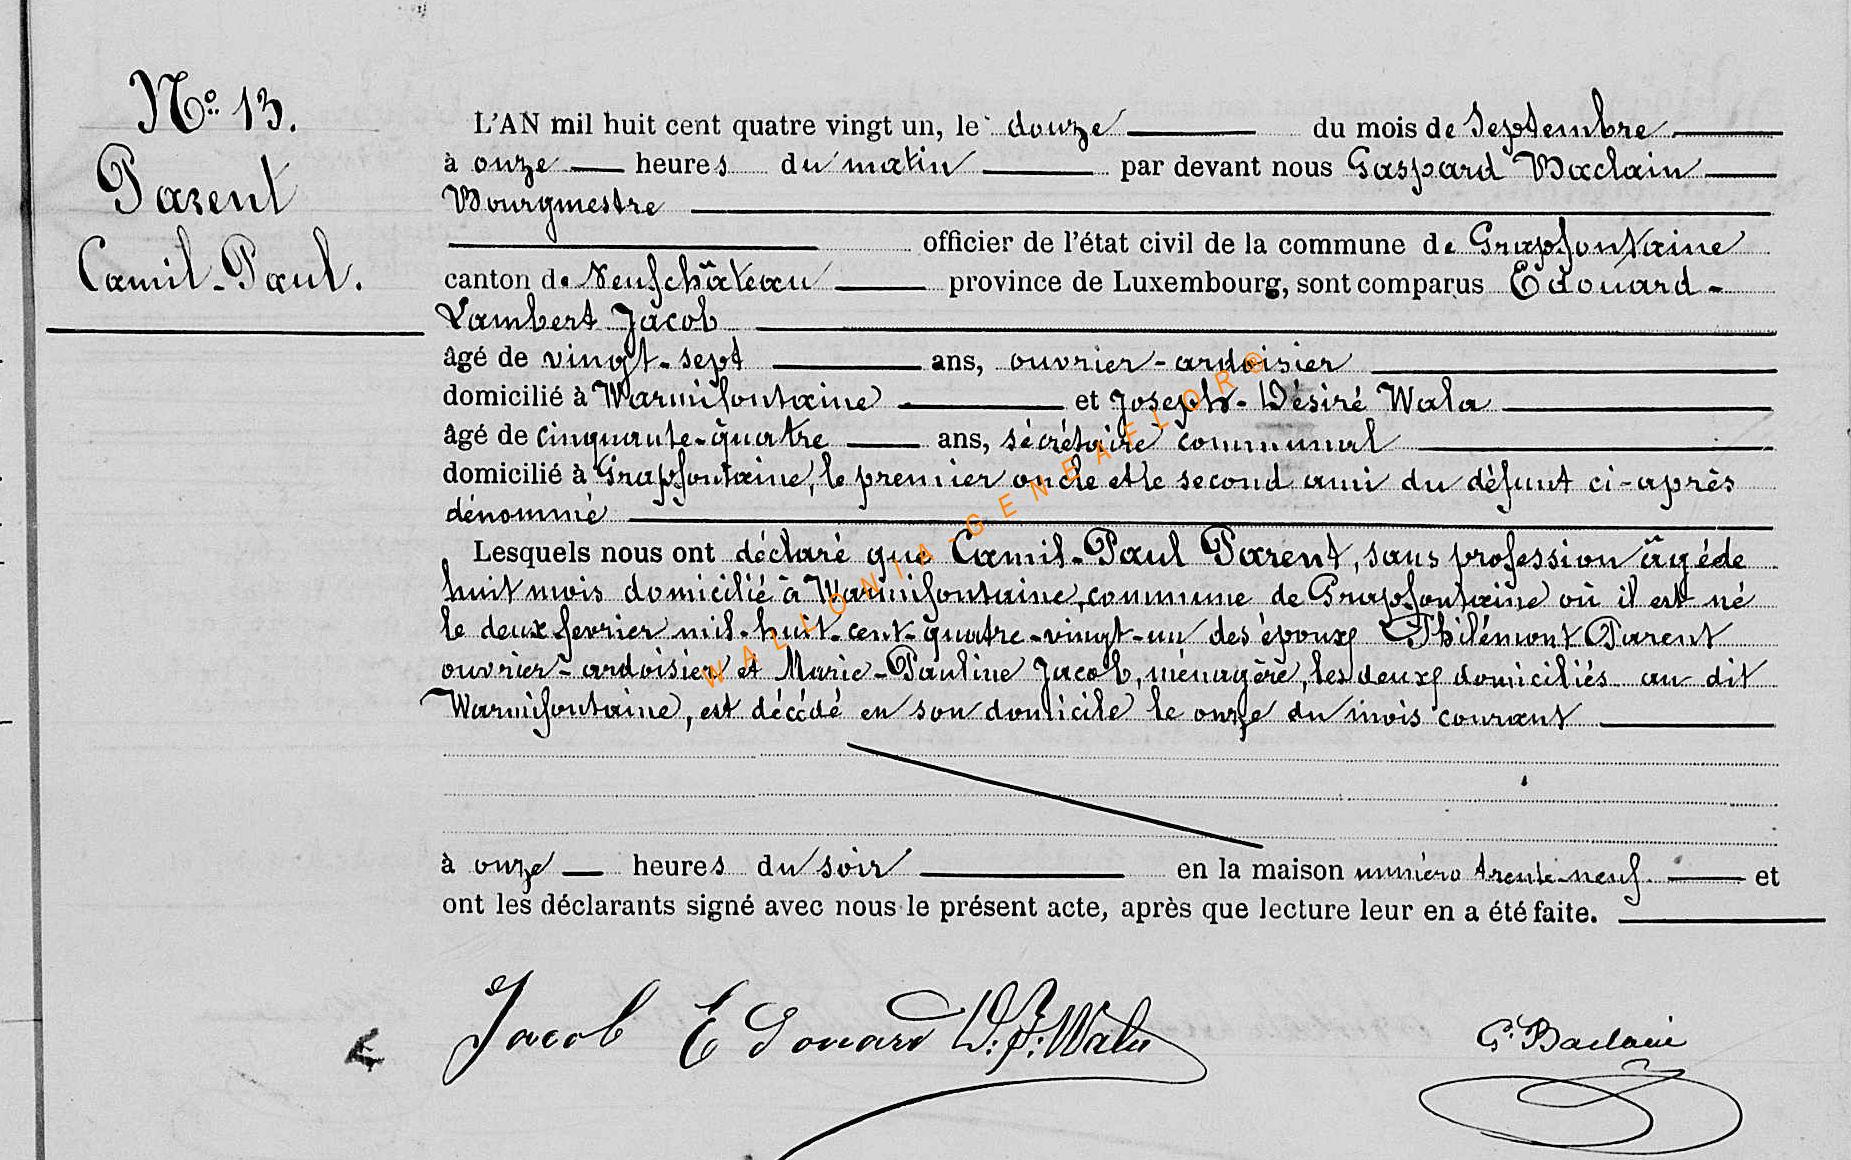 No. 13.
Parent
Camil-Paul.
L'AN mil huit cent quatre vingt un, le douze du mois de Septembre
à onze heures du matin par devant nous Gaspard Baclain
Bourgmestre
officier de l'état civil de la commune de Grapfontaine
canton de Neufchâteau province de Luxembourg, sont comparus Edouard-
Lambert Jacob
âgé de vingt-sept ans, ouvrier-ardoisier
domicilié à Warmifontaine et Joseph-Désiré Wala
âgé de cinquante-quatre ans, sécrétaire communal
domicilié à Grapfontaine, le premier oncle et le second ami du défunt ci-après
dénommé
Lesquels nous ont déclaré que Camil-Paul Parent, sans profession âgé de
huit mois domicilié à Warmifontaine, commune de Grapfontaine où il est né
le deux fevrier mil-huit-cent-quatre-vingt-un des époux Philémont Parent
ouvrier-ardoisier et Marie-Pauline Jacob, ménagère, les deux domiciliés au dit
Warmifontaine, est décédé en son domicile le onze du mois courant
à onze heures du soir en la maison numéro trente-neuf et
ont les déclarants signé avec nous le présent acte, après que lecture leur en a été faite.
Jacob Edouard D. J. Wala G. Baclain
WALLONIA-GENEAFLOR®